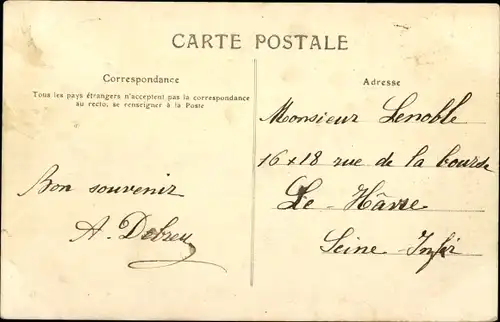 CARTE POSTALE
Correspondance
Tous les pays étrangers n'acceptent pas la correspondance
au recto, se renseigner à la Poste
Bon souvenir
A. Debreu
Adresse
Monsieur Lenoble
16 + 18 rue de la bourse
Le - Hâvre
Seine - Infér